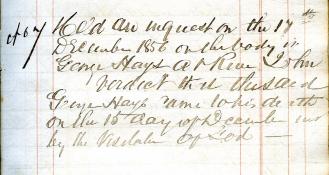 No 67 Held an inquest on the 17th
December 1856 on the body of
George Hays at River John
verdict that the said
George Hays came to his death
on the 15 day of December inst
by the Visitation of God —